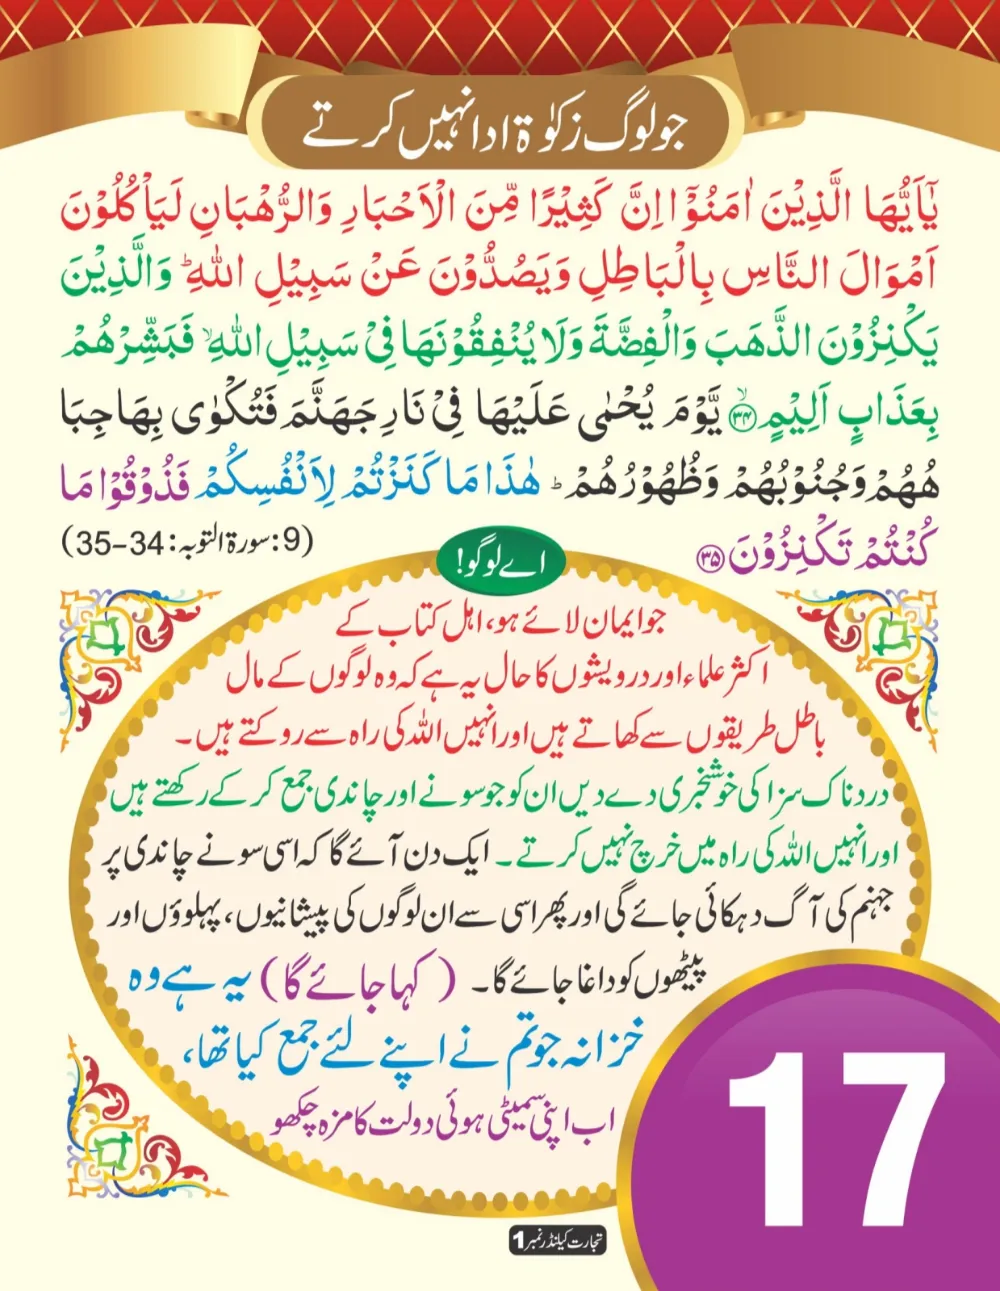 جو لوگ زکوٰۃ ادا نہیں کرتے
يٰٓاَيُّهَا الَّذِيْنَ اٰمَنُوْٓا اِنَّ كَثِيْرًا مِّنَ الْاَحْبَارِ وَالرُّهْبَانِ لَيَاْكُلُوْنَ
اَمْوَالَ النَّاسِ بِالْبَاطِلِ وَيَصُدُّوْنَ عَنْ سَبِيْلِ اللّٰهِ ؕ وَالَّذِيْنَ
يَكْنِزُوْنَ الذَّهَبَ وَالْفِضَّةَ وَلَا يُنْفِقُوْنَهَا فِىْ سَبِيْلِ اللّٰهِ ۙ فَبَشِّرْهُمْ
بِعَذَابٍ اَلِيْمٍ ۙ ﴿۳۴﴾ يَّوْمَ يُحْمٰى عَلَيْهَا فِىْ نَارِ جَهَنَّمَ فَتُكْوٰى بِهَا جِبَا
هُهُمْ وَجُنُوْبُهُمْ وَظُهُوْرُهُمْ ؕ هٰذَا مَا كَنَزْتُمْ لِاَنْفُسِكُمْ فَذُوْقُوْا مَا
كُنْتُمْ تَكْنِزُوْنَ ﴿۳۵﴾ (9: سورۃ التوبہ: 34-35)
اے لوگو!
جو ایمان لائے ہو، اہل کتاب کے
اکثر علماء اور درویشوں کا حال یہ ہے کہ وہ لوگوں کے مال
باطل طریقوں سے کھاتے ہیں اور انہیں اللہ کی راہ سے روکتے ہیں۔
دردناک سزا کی خوشخبری دے دیں ان کو جو سونے اور چاندی جمع کر کے رکھتے ہیں
اور انہیں اللہ کی راہ میں خرچ نہیں کرتے۔ ایک دن آئے گا کہ اسی سونے چاندی پر
جہنم کی آگ دہکائی جائے گی اور پھر اسی سے ان لوگوں کی پیشانیوں، پہلوؤں اور
پیٹھوں کو داغا جائے گا۔ (کہا جائے گا) یہ ہے وہ
خزانہ جو تم نے اپنے لئے جمع کیا تھا،
اب اپنی سمیٹی ہوئی دولت کا مزہ چکھو
17
تجارت کیلنڈر نمبر 1